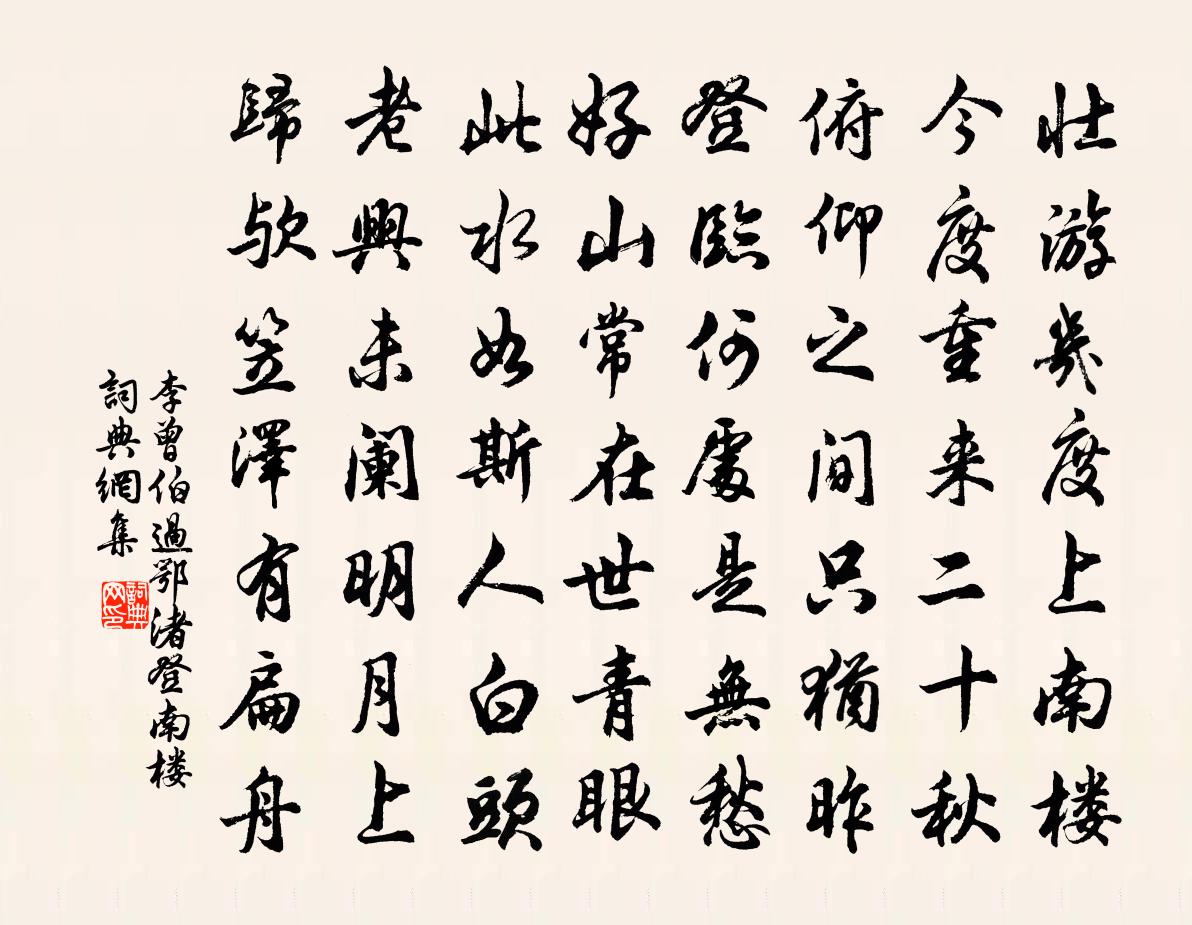 壮游幾度上南楼
今度重来二十秋
俯仰之间只猶昨
登臨何處是無愁
好山常在世青眼
此水如斯人白頭
老興未阑明月上
歸欤笠澤有扁舟
李曾伯過鄂渚登南楼
詞典網集
詞典网印